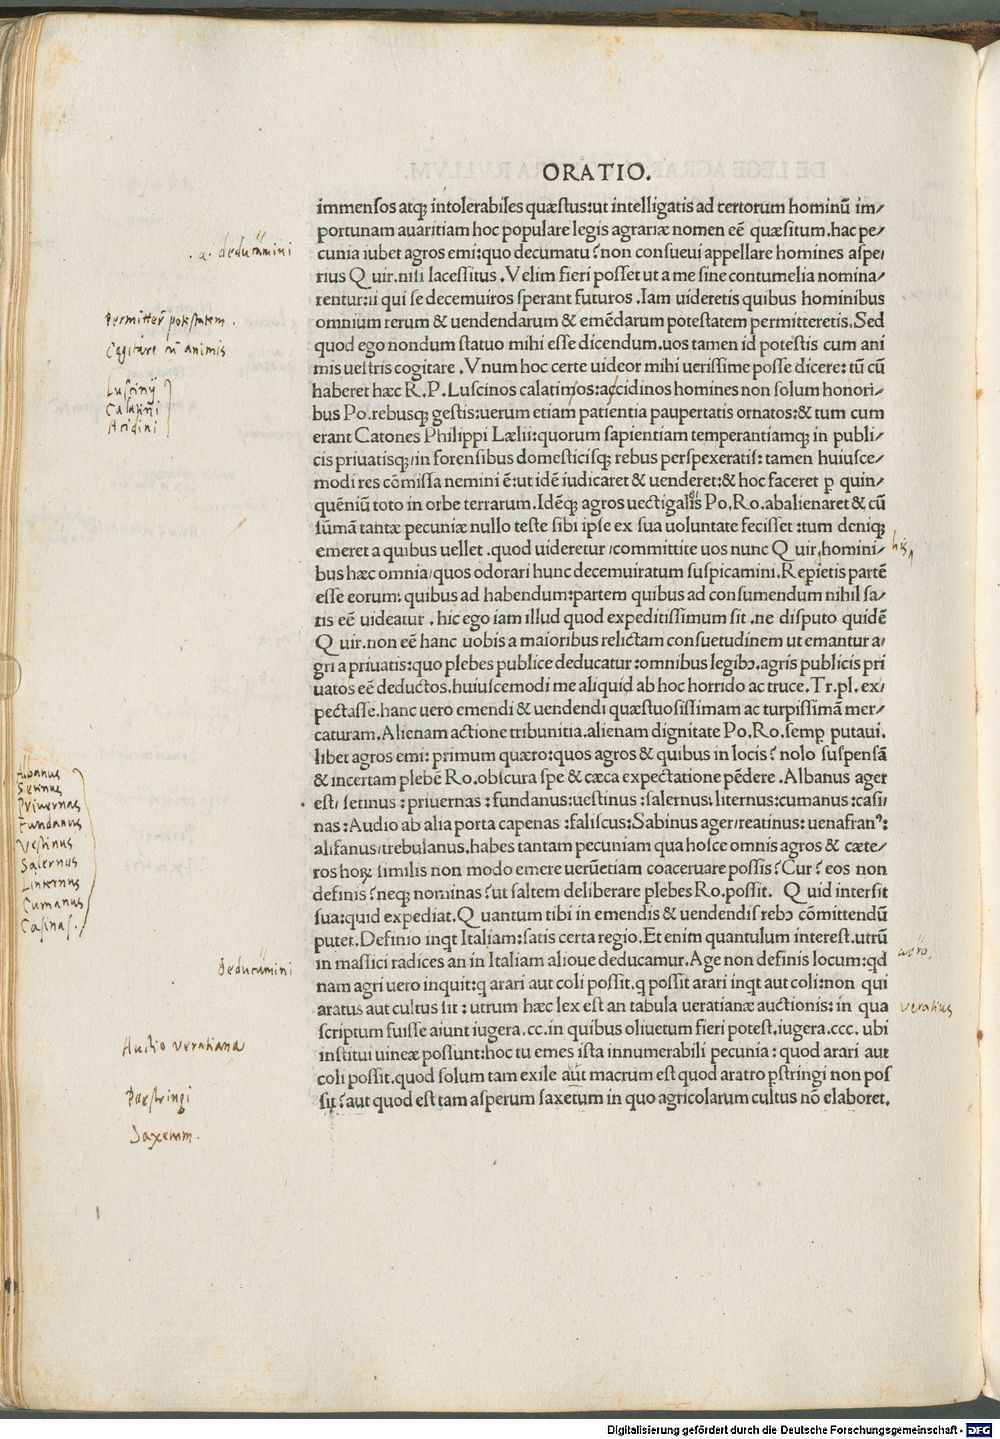 ORATIO.
immensos atq; intolerabiles quæstus:ut intelligatis ad certorum hominū im/
portunam auaritiam hoc populare legis agrariæ nomen eē quæsitum.hac pe/
cunia iubet agros emi:quo decumatu?non consueui appellare homines aspe/
rius Quir.nisi lacessitus.Velim fieri posset ut a me sine contumelia nomina/
rentur:ii qui se decemuiros sperant futuros.Iam uideretis quibus hominibus
omnium rerum & uendendarum & emēdarum potestatem permitteretis.Sed
quod ego nondum statuo mihi esse dicendum.uos tamen id potestis cum ani
mis uestris cogitare.Vnum hoc certe uideor mihi uerissime posse dicere:tū cū
haberet hæc R.P.Luscinos calatinos:accidinos homines non solum honori/
bus Po.rebusq; gestis:uerum etiam patientia paupertatis ornatos:& tum cum
erant Catones Philippi Lælii:quorum sapientiam temperantiamq; in publi/
cis priuatisq;/in forensibus domesticisq; rebus perspexeratis:tamen huiusce/
modi res cōmissa nemini ē:ut idē iudicaret & uenderet:& hoc faceret ꝑ quin/
quēniū toto in orbe terrarum.Idēq; agros uectigalis Po.Ro.abalienaret & cū
sūmā tantæ pecuniæ nullo teste sibi ipse ex sua uoluntate fecisset:tum deniq;
emeret a quibus uellet.quod uideretur/committite uos nunc Quir.homini/
bus hæc omnia/quos odorari hunc decemuiratum suspicamini.Repietis partē
esse eorum:quibus ad habendum:partem quibus ad consumendum nihil sa/
tis eē uideatur.hic ego iam illud quod expeditissimum sit.ne disputo quidē
Quir.non eē hanc uobis a maioribus relictam consuetudinem ut emantur a/
gri a priuatis:quo plebes publice deducatur:omnibus legibꝫ.agris publicis pri
uatos eē deductos.huiuscemodi me aliquid ab hoc horrido ac truce.Tr.pl.ex/
pectasse.hanc uero emendi & uendendi quæstuosissimam ac turpissimā mer/
caturam.Alienam actione tribunitia.alienam dignitate Po.Ro.semꝑ putaui.
libet agros emi:primum quæro:quos agros & quibus in locis?nolo suspensā
& incertam plebē Ro.obscura spe & cæca expectatione pēdere.Albanus ager
est/setinus:priuernas:fundanus:uestinus:salernus:liternus:cumanus:casi/
nas:Audio ab alia porta capenas:faliscus:Sabinus ager/reatinus:uenafranꝰ:
alifanus/trebulanus.habes tantam pecuniam qua hosce omnis agros & cæte/
ros hoꝝ similis non modo emere uerūetiam coaceruare possis?Cur?eos non
definis?neq; nominas?ut saltem deliberare plebes Ro.possit. Quid intersit
sua:quid expediat.Quantum tibi in emendis & uendendis rebꝫ cōmittendū
putet.Definio inqt Italiam:satis certa regio.Et enim quantulum interest.utrū
in massici radices an in Italiam alioue deducamur.Age non definis locum:qd
nam agri uero inquit:q arari aut coli possit.q possit arari inqt aut coli:non qui
aratus aut cultus sit:utrum hæc lex est an tabula ueratianæ auctionis:in qua
scriptum fuisse aiunt iugera.cc.in quibus oliuetum fieri potest.iugera.ccc.ubi
institui uineæ possunt:hoc tu emes ista innumerabili pecunia:quod arari aut
coli possit.quod solum tam exile aut macrum est quod aratro ꝑstringi non pos
sit?aut quod est tam asperum saxetum in quo agricolarum cultus nō elaboret.
.a. deducamini
Permitter potestatem.
Cogitare cū animis
Luscinij
Calatini
Acidini
his
Albanus
Setinus
Privernas
Fundanus
Vestinus
Salernus
Linternus
Cumanus
Casinas.
deducamini
vero,
veratius
Auctio veratiana
Perstringi
Saxetum.
Digitalisierung gefördert durch die Deutsche Forschungsgemeinschaft - DFG